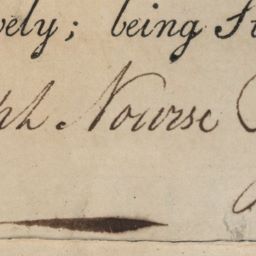 vely; being Fi
ph Nourse